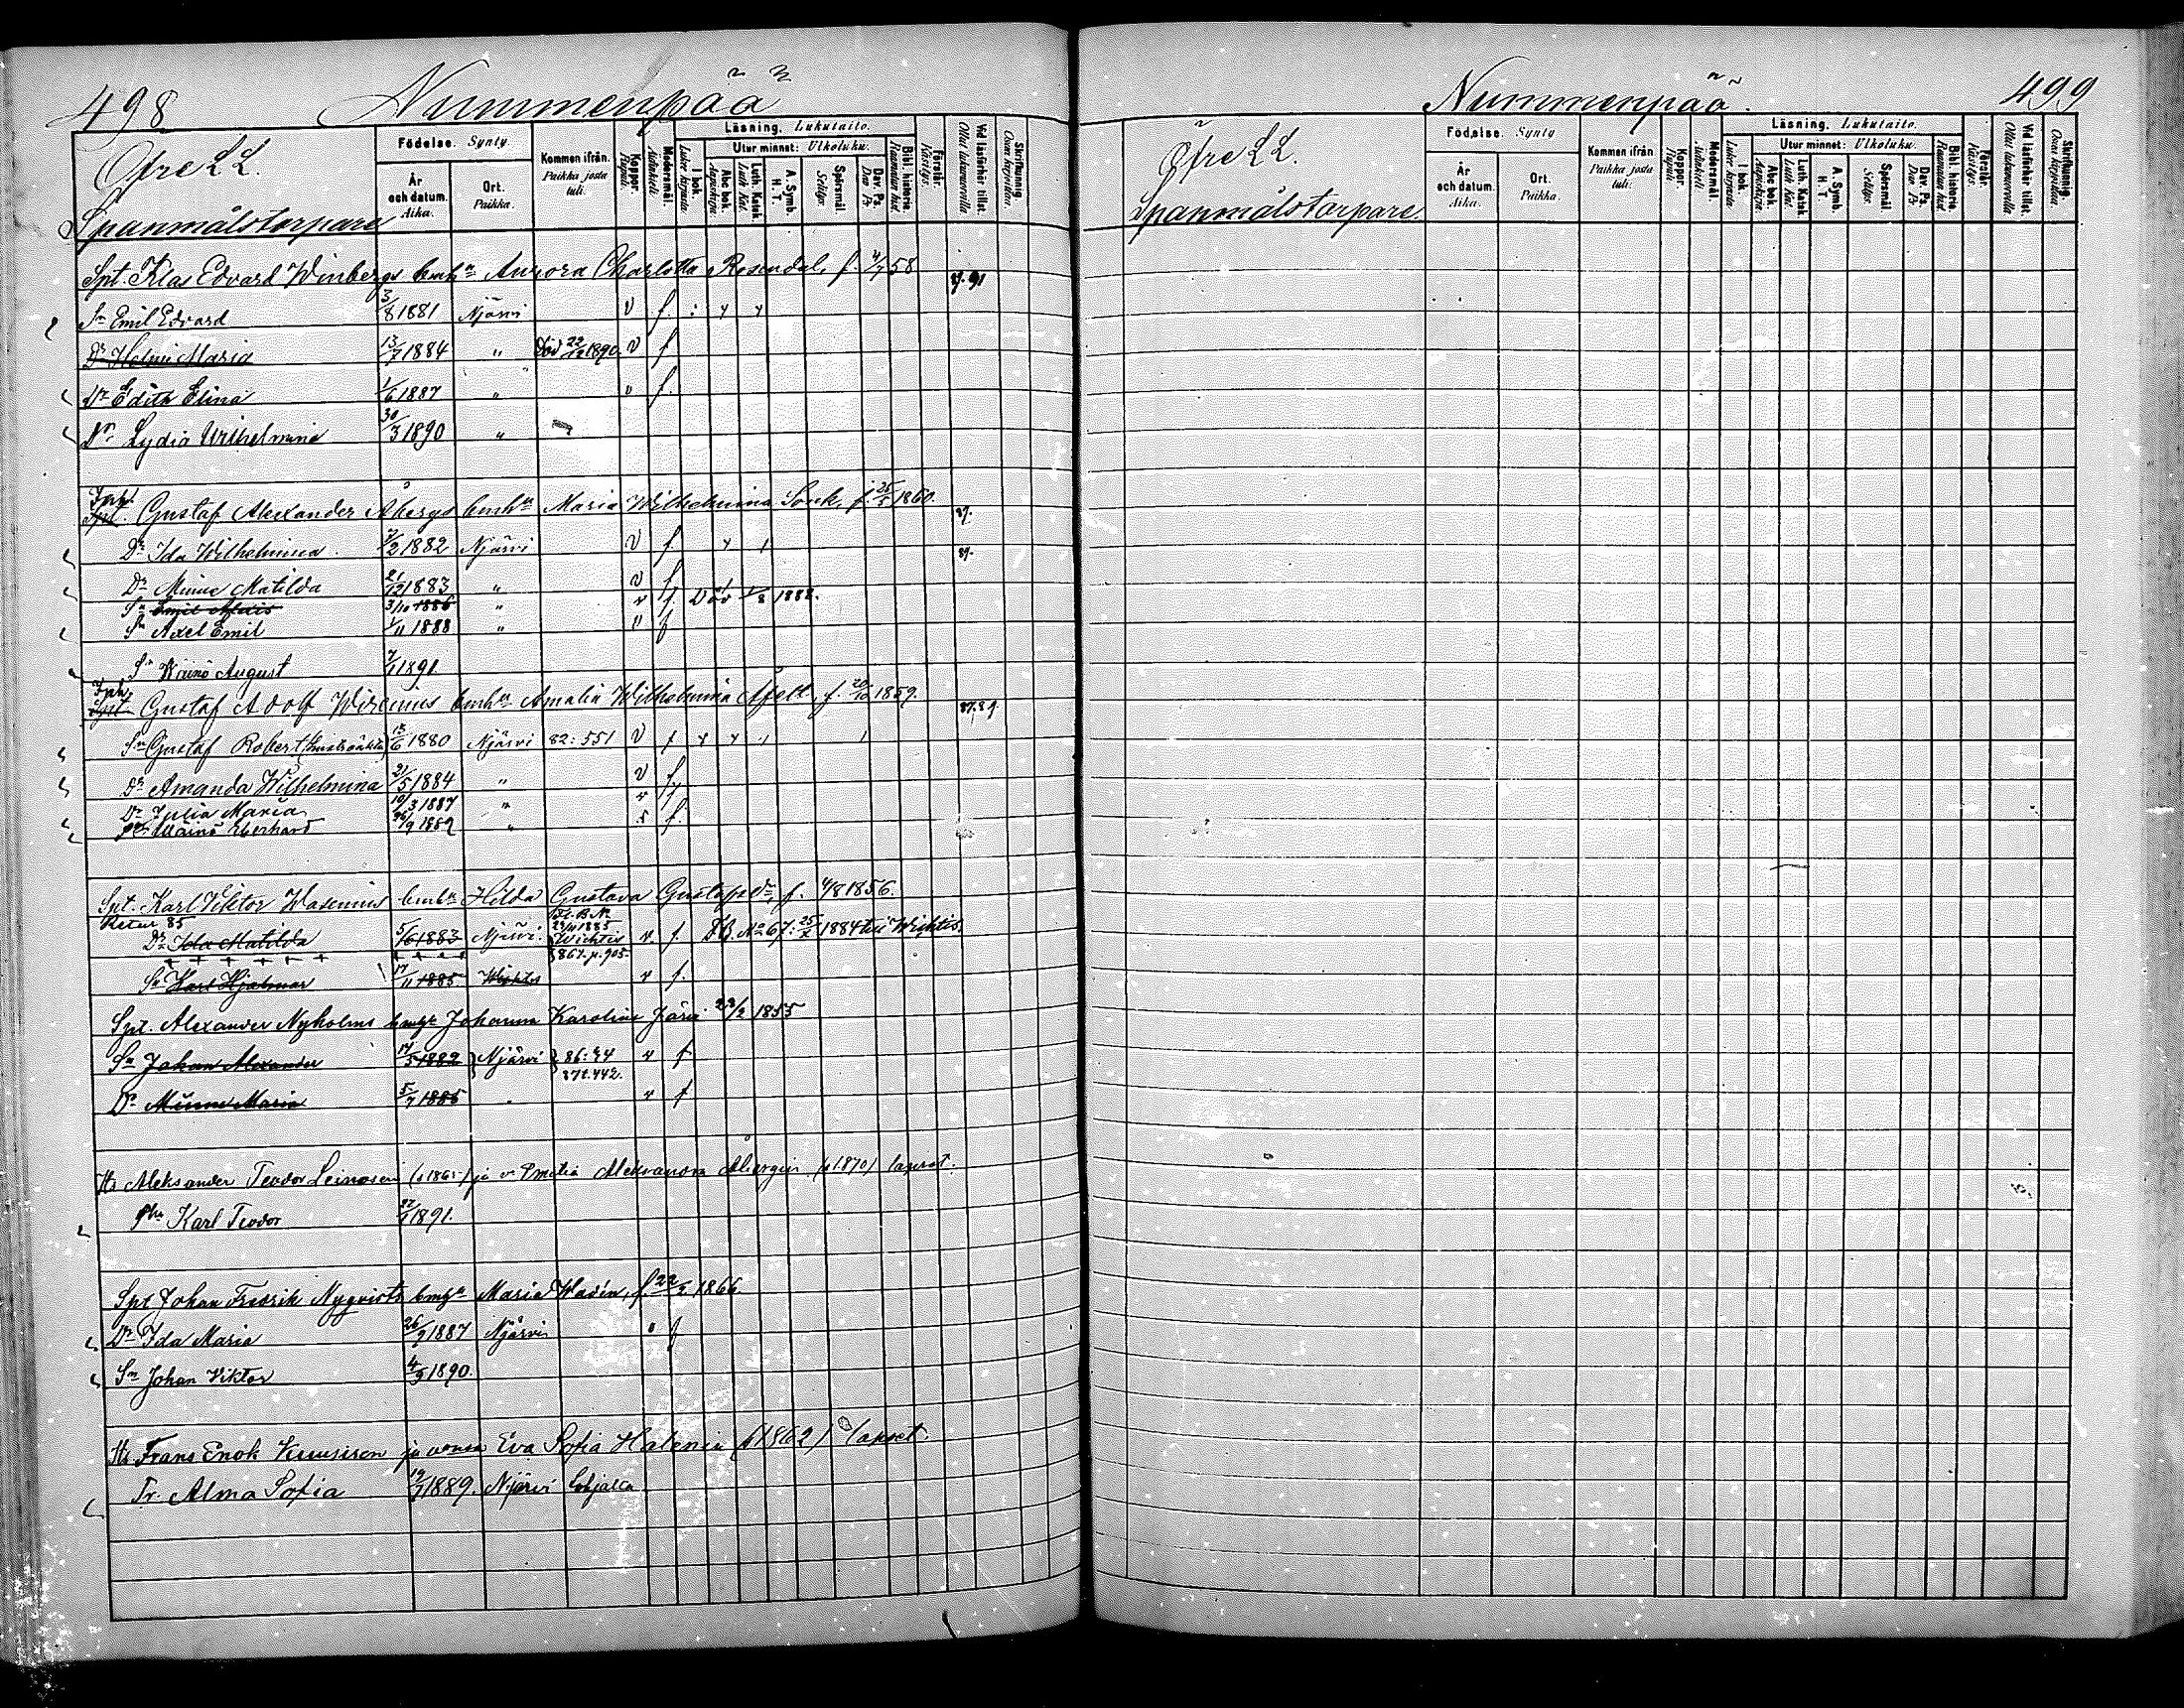 498 Nummenpää
Öfre LL.
Spanmålstorpare
Födelse. Synty.
År och datum. Aika.
Ort. Paikka.
Kommen ifrån. Paikka josta tuli.
Koppor. Rupuli.
Modersmål. Äidinkieli.
Läsning. Lukutaito.
I bok.
Utur minnet: Ulkoluku.
Abc bok. Aapiskirja.
Luth. Katek. Luth. Kat.
A. Symb. H. T.
Spörsmål. Selitys.
Dav. Ps. Dav. Ps.
Bibl. historia. Raamatun hist.
Förstår. Käsitys.
Vid läsförhör tillst. Ollut lukuvuorolla
Skrifkunnig. Osaa kirjoittaa.
Spt. Klas Edvard Winbergs hmhu Aurora Charlotta Rosendal, f. 4/7 58
87. 91
Sn Emil Edvard 3/8 1881 Njärvi v f.
Dr Helmi Maria 13/7 1884 " Död 22/12 1890. v f
Dr Edith Elina 1/6 1887 " v f.
Dr Lydia Wilhelmina 30/3 1890 "
Spt. Gustaf Alexander Åbergs hmhu Maria Wilhelmina Sonk, f. 25/5 1860.
87.
Dr Ida Wilhelmina 7/2 1882 Njärvi v f.
89.
Dr Minna Matilda 21/12 1883 " v f
Sn Emil Alexis 3/10 1886 " v f. Död 1/8 1888.
Sn Axel Emil 1/11 1888 " v f
Sn Wäinö August 7/1 1891.
Spt Gustaf Adolf Wirenius hmhu Amalia Wilhelmina f. 20/10 1859.
87. 89.
Sn Gustaf Robert 15/6 1880 Njärvi 82: 551 v f
Dr Amanda Wilhelmina 21/5 1884 " v f
Dr Julia Maria 10/3 1887 " v f
Wäinö Eberhard 26/9 1889 " f.
Spt. Karl Viktor Wasenius hmhu Hilda Gustava Gustafsdr, f. 4/8 1856.
Retur 85
Dr Ida Matilda 5/6 1883 Njärvi. Wichtis 867. p. 905. v. f. No 67: 25/x 1884 till Wichtis.
Sn Karl Hjalmar 17/11 1885 Wichtis v f.
Spt. Alexander Nyholms hmhu Johanna Karolina Järvi 23/2 1855
Sn Johan Alexander 17/5 1882 Njärvi 86: 44 v f
87 t. 442.
Dr Minna Maria 5/7 1885 " v f
Its Aleksander Teodor Leinosen (s 1865) ja v. Emelia Aleksandra Åbergin (s 1870) lapset.
Karl Teodor 27/1 1891.
Spt Johan Fredrik Nyqvists hmhu Maria Wadén, f. 22/2 1866.
Dr Ida Maria 26/9 1887 Njärvi v f
Sn Johan Viktor 4/9 1890.
Its Frans Enok Kuusisen ja vaimo Eva Sofia Halenin (s 1862) lapset.
Tr. Alma Sofia 19/7 1889. Njärvi Lohjalta
Nummenpää. 499
Öfre LL.
Spanmålstorpare.
Födelse. Synty
År och datum. Aika.
Ort. Paikka.
Kommen ifrån Paikka josta tuli.
Koppor. Rupuli.
Modersmål. Äidinkieli
Läsning. Lukutaito.
I bok.
Utur minnet: Ulkoluku.
Abc bok. Aapiskirja.
Luth. Katek. Luth. Kat.
A. Symb. H. T.
Spörsmål. Selitys.
Dav. Ps. Dav. Ps
Bibl. historia. Raamatun hist.
Förstår. Käsitys.
Vid läsförhör tillst. Ollut lukuvuorolla
Skrifkunnig. Osaa kirjoittaa.